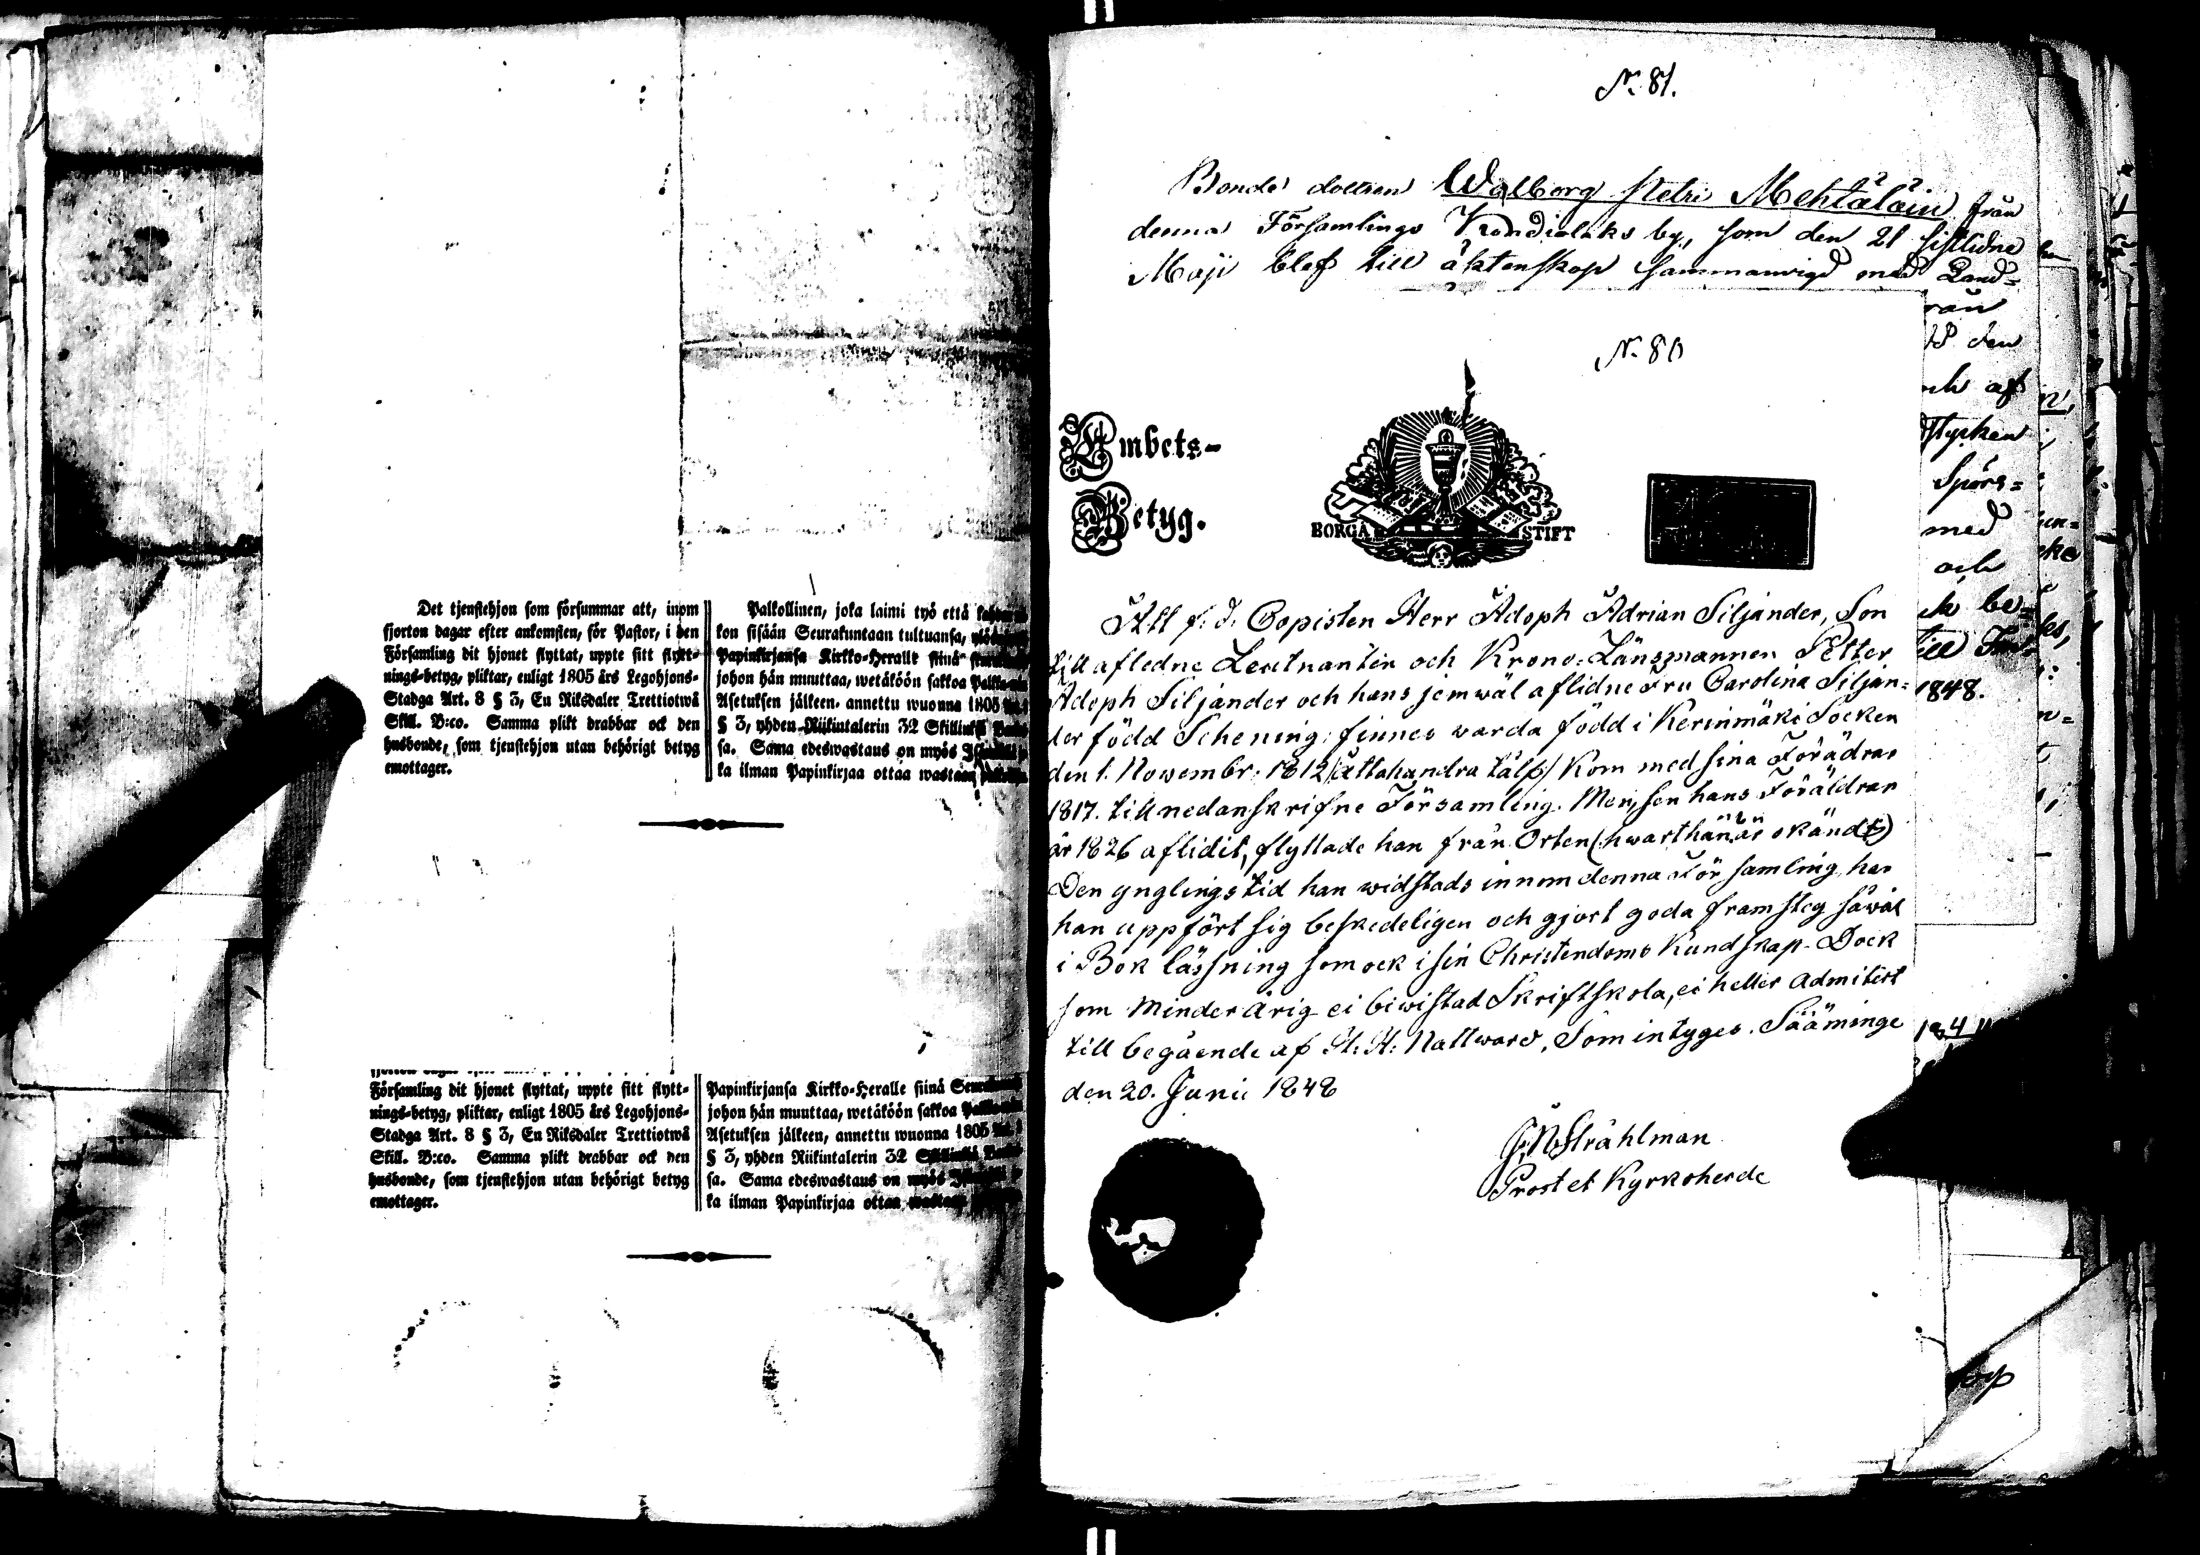 Det tjenstehjon som försummar att, inom
fjorton dagar efter ankomsten, för Pastor, i den
Församling dit hjonet flyttat, uppte sitt flytt-
nings-betyg, pliktar, enligt 1805 års Legohjons-
Stadga Art. 8 § 3, En Riksdaler Trettiotwå
Skill. B:co. Samma plikt drabbar ock den
husbonde, som tjenstehjon utan behörigt betyg
emottager.
Palkollinen, joka laimi työ että
kon sisään Seurakuntaan tultuansa,
Papinkirjansa Kirkko-Heralle siinä
johon hän muuttaa, wetäköön sakkoa
Asetuksen jälkeen, annettu wuonna 1805
§ 3, yhden Riikintalerin 32 Skillinkiä
sa. Sama edeswastaus on myös
ka ilman Papinkirjaa ottaa wastaan
Församling dit hjonet flyttat, uppte sitt flytt-
nings-betyg, pliktar, enligt 1805 års Legohjons-
Stadga Art. 8 § 3, En Riksdaler Trettiotwå
Skill. B:co. Samma plikt drabbar ock den
husbonde, som tjenstehjon utan behörigt betyg
emottager.
Papinkirjansa Kirkko-Heralle siinä
johon hän muuttaa, wetäköön sakkoa
Asetuksen jälkeen, annettu wuonna 1805
§ 3, yhden Riikintalerin 32
sa. Sama edeswastaus on myös
ka ilman Papinkirjaa ottaa
N. 81.
Bonde dottren Walborg Petri Mehtäläin från
denna Församlings Kondiolaks by, som den 21 sistlidne
Maji blef till äktenskap sammanvigd med Land=
rån
den
af
stycken
Spörs=
med
och
be=
till
1848.
N. 80
Embets-
Betyg.
BORGÅ STIFT
Att f. d. Copisten Herr Adoph Adrian Siljander, Son
till afledne Leutnanten och Krono-Länsmannen Petter
Adoph Siljander och hans jemwäl aflidne Fru Carolina Siljan=
der född Schening: finnes warda född i Kerimäki Socken
den 1. Nowembr: 1812 /Åttahundra tålf/ Kom med sina Förädrar
1817. till nedanskrifne Församling. Men sen hans Föräldrar
år 1826 aflidit, flyttade han från Orten (hwarthän är okändt)
Den ynglings tid han widstads innom denna Församling har
han uppfört sig beskedeligen och gjort goda framsteg såwäl
i Bok läsning som ock i sin Christendoms Kundskap. Dock
som Minderårig ei biwistad Skriftskola, ei heller admitert
till begående af H: H: Nattward, Som intyges. Sääminge
den 20. Junii 1848
J. N Stråhlman
Prost et Kyrkoherde